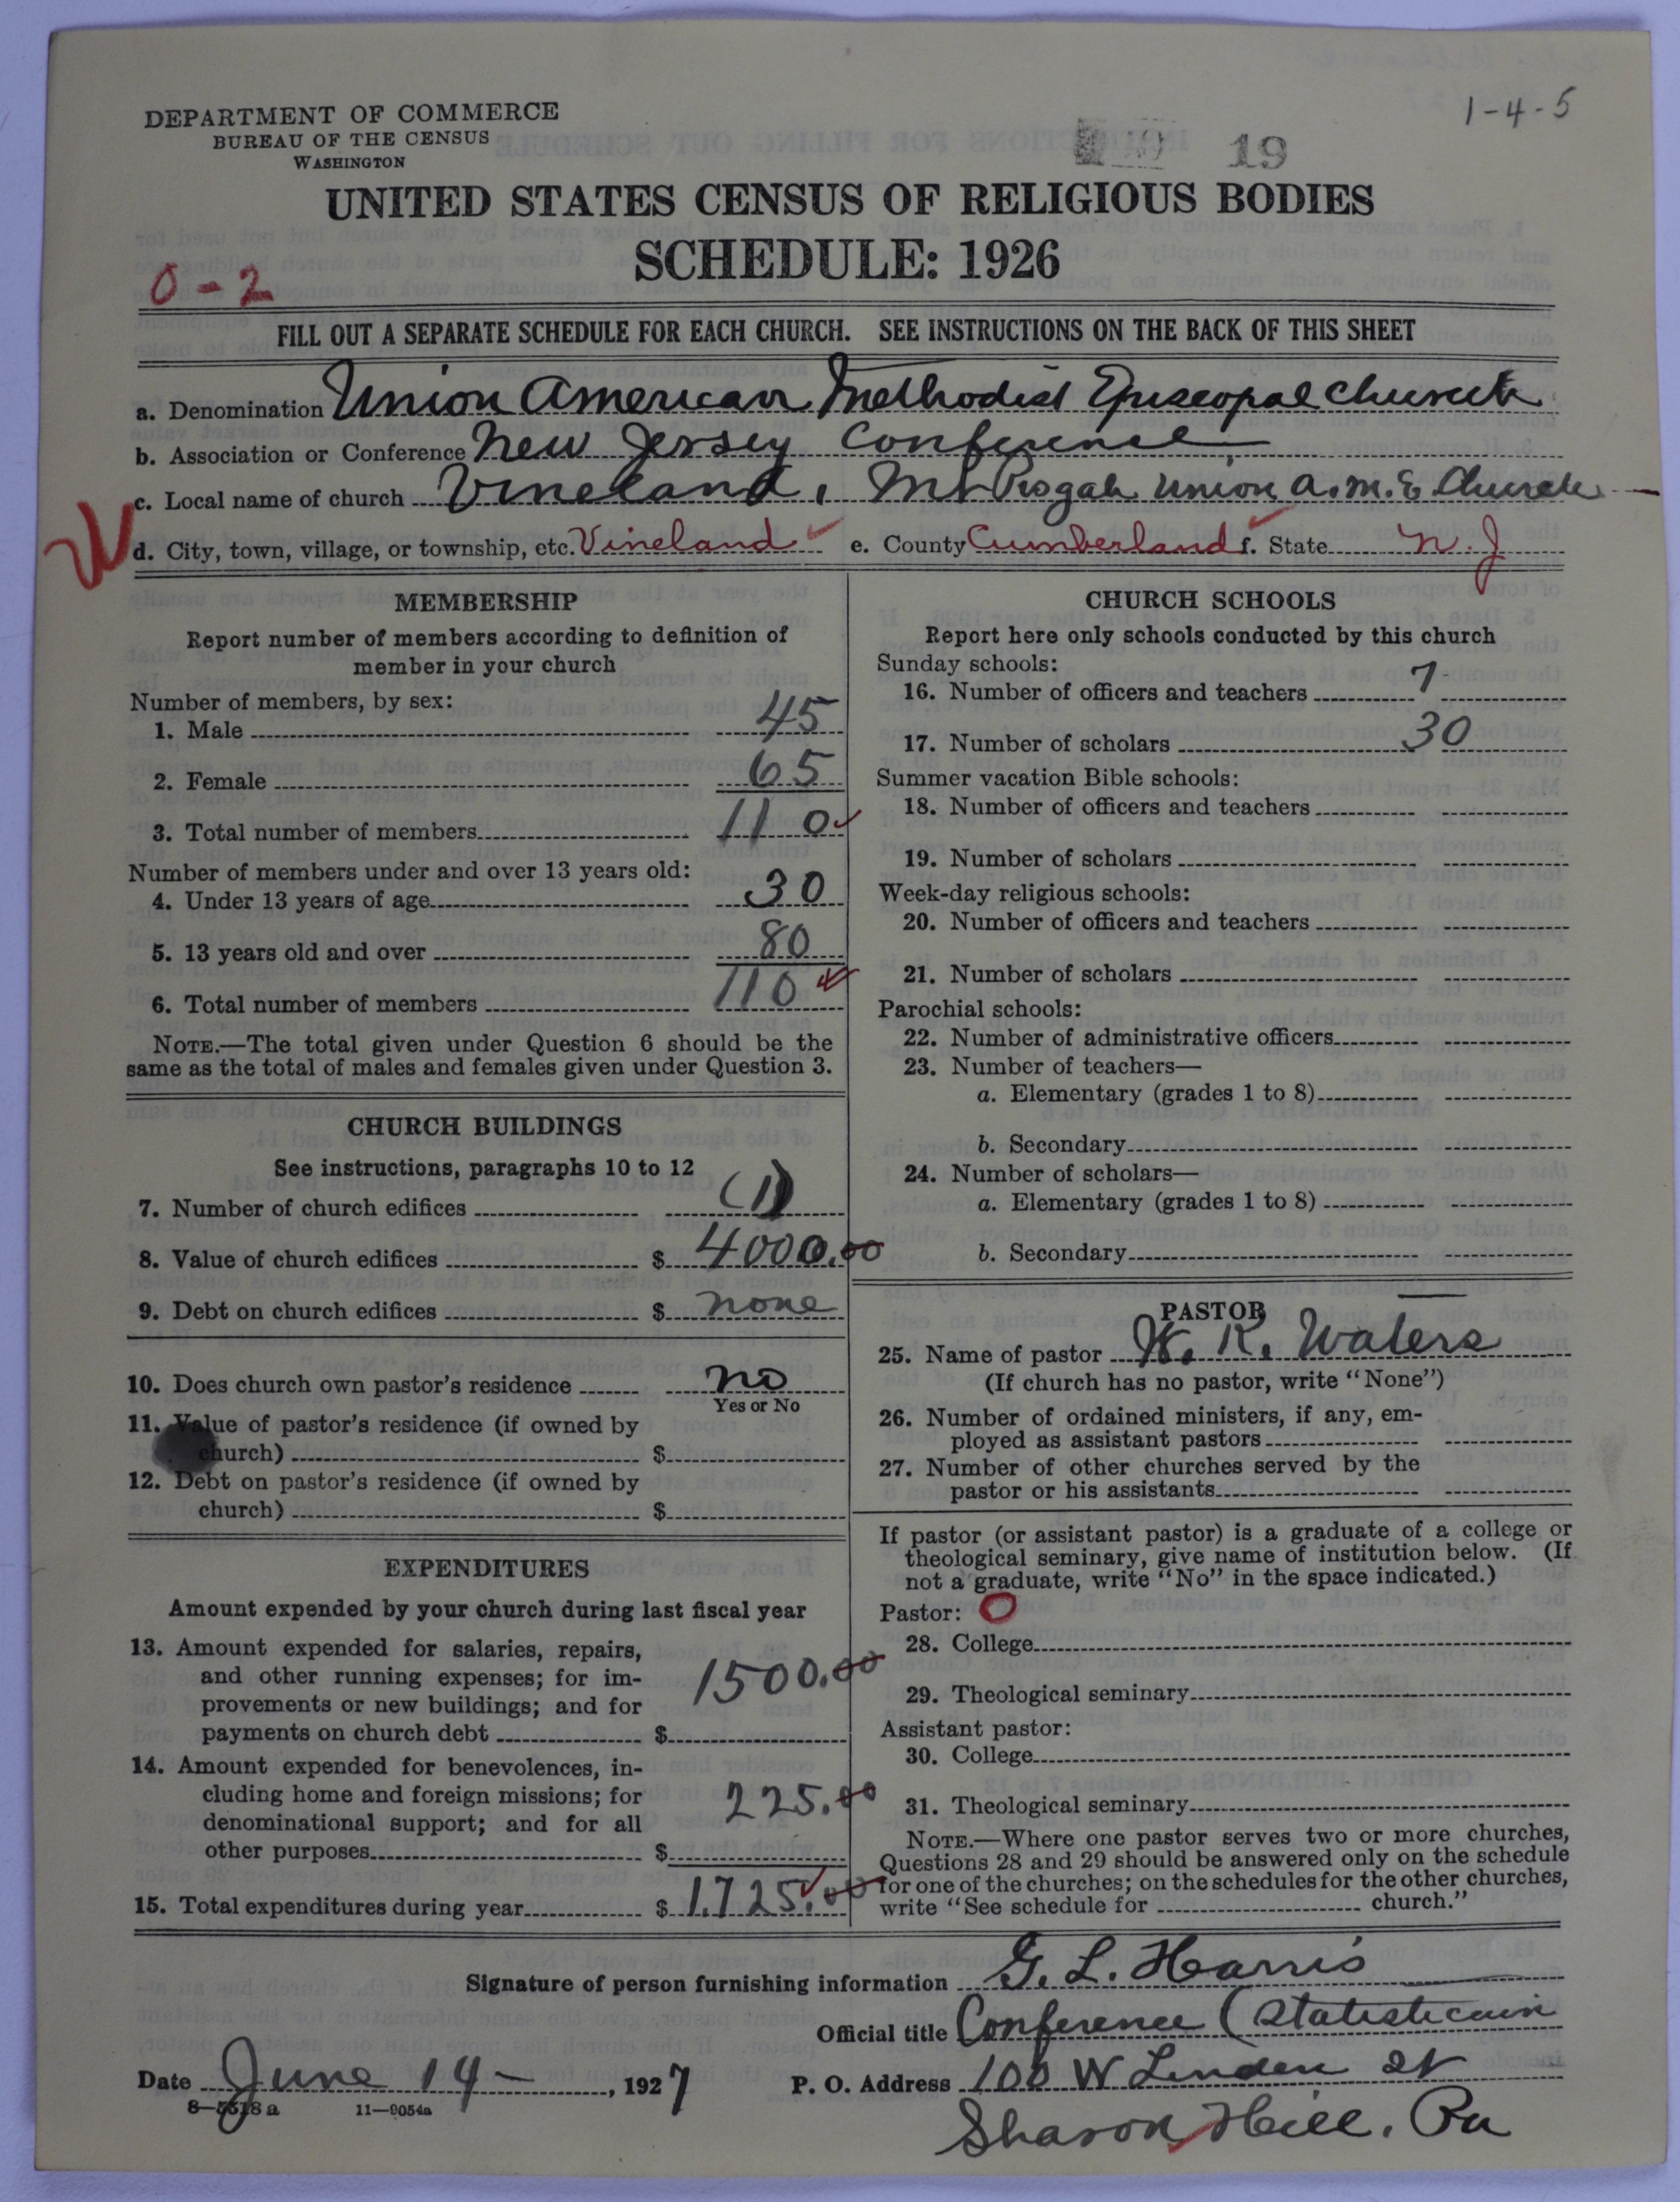 1-4-5
DEPARTMENT OF COMMERCE
BUREAU OF THE CENSUS
WASHINGTON
19
UNITED STATES CENSUS OF RELIGIOUS BODIES
SCHEDULE: 1926
0-2
FILL OUT A SEPARATE SCHEDULE FOR EACH CHURCH. SEE INSTRUCTIONS ON THE BACK OF THIS SHEET
a. Denomination Union American Methodist Episcopal Church
b. Association or Conference New Jersey Conference
c. Local name of church Vineland, Mt Pisgah Union A.M.E Church
d. City, town, village, or township, etc. Vineland e. County Cumberland f. State N. J
MEMBERSHIP
Report number of members according to definition of
member in your church
Number of members, by sex:
1. Male 45
2. Female 65
3. Total number of members 110
Number of members under and over 13 years old:
4. Under 13 years of age 30
5. 13 years old and over 80
6. Total number of members 110
NOTE.—The total given under Question 6 should be the
same as the total of males and females given under Question 3.
CHURCH BUILDINGS
See instructions, paragraphs 10 to 12
7. Number of church edifices (1)
8. Value of church edifices $ 4000.00
9. Debt on church edifices $ none
10. Does church own pastor's residence no
Yes or No
11. Value of pastor's residence (if owned by
church) $
12. Debt on pastor's residence (if owned by
church) $
EXPENDITURES
Amount expended by your church during last fiscal year
13. Amount expended for salaries, repairs,
and other running expenses; for im-
provements or new buildings; and for
payments on church debt $ 1500.00
14. Amount expended for benevolences, in-
cluding home and foreign missions; for
denominational support; and for all
other purposes $ 225.00
15. Total expenditures during year $ 1,725.00
CHURCH SCHOOLS
Report here only schools conducted by this church
Sunday schools:
16. Number of officers and teachers 7
17. Number of scholars 30
Summer vacation Bible schools:
18. Number of officers and teachers
19. Number of scholars
Week-day religious schools:
20. Number of officers and teachers
21. Number of scholars
Parochial schools:
22. Number of administrative officers
23. Number of teachers—
a. Elementary (grades 1 to 8)
b. Secondary
24. Number of scholars—
a. Elementary (grades 1 to 8)
b. Secondary
PASTOR
25. Name of pastor W. K. Waters
(If church has no pastor, write "None")
26. Number of ordained ministers, if any, em-
ployed as assistant pastors
27. Number of other churches served by the
pastor or his assistants
If pastor (or assistant pastor) is a graduate of a college or
theological seminary, give name of institution below. (If
not a graduate, write "No" in the space indicated.)
Pastor: O
28. College
29. Theological seminary
Assistant pastor:
30. College
31. Theological seminary
NOTE.—Where one pastor serves two or more churches,
Questions 28 and 29 should be answered only on the schedule
for one of the churches; on the schedules for the other churches,
write "See schedule for church."
Signature of person furnishing information G. L. Harris
Official title Conference (Statistecain
Date June 14 -, 1927 P. O. Address 100 W Linden St
8-5518 a 11-9054a
Sharon Hill, Pa